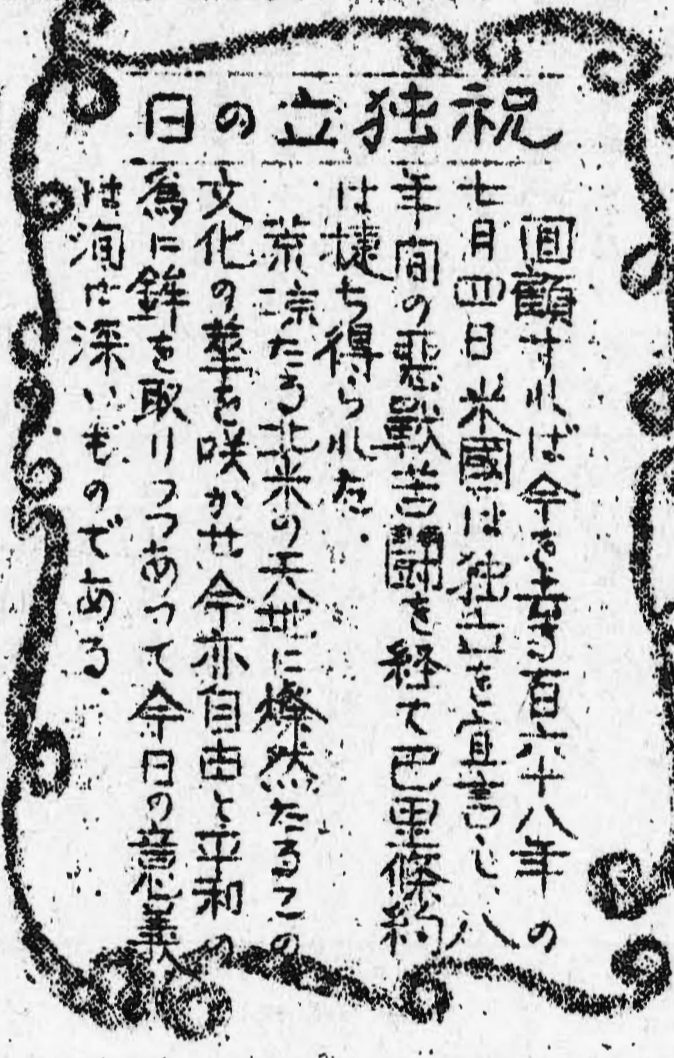 祝独立の日
回顧すれば今を去る百六十八年の
七月四日米國は独立を宣言し、八
年間の悪戰苦闘を経て巴里條約
は捷ち得られた.
荒涼たる北米の天地に燦然たるこの
文化の華を咲かせ今亦自由と平和の
為に鉾を取りつつあって今日の意義
は洵に深いものである.